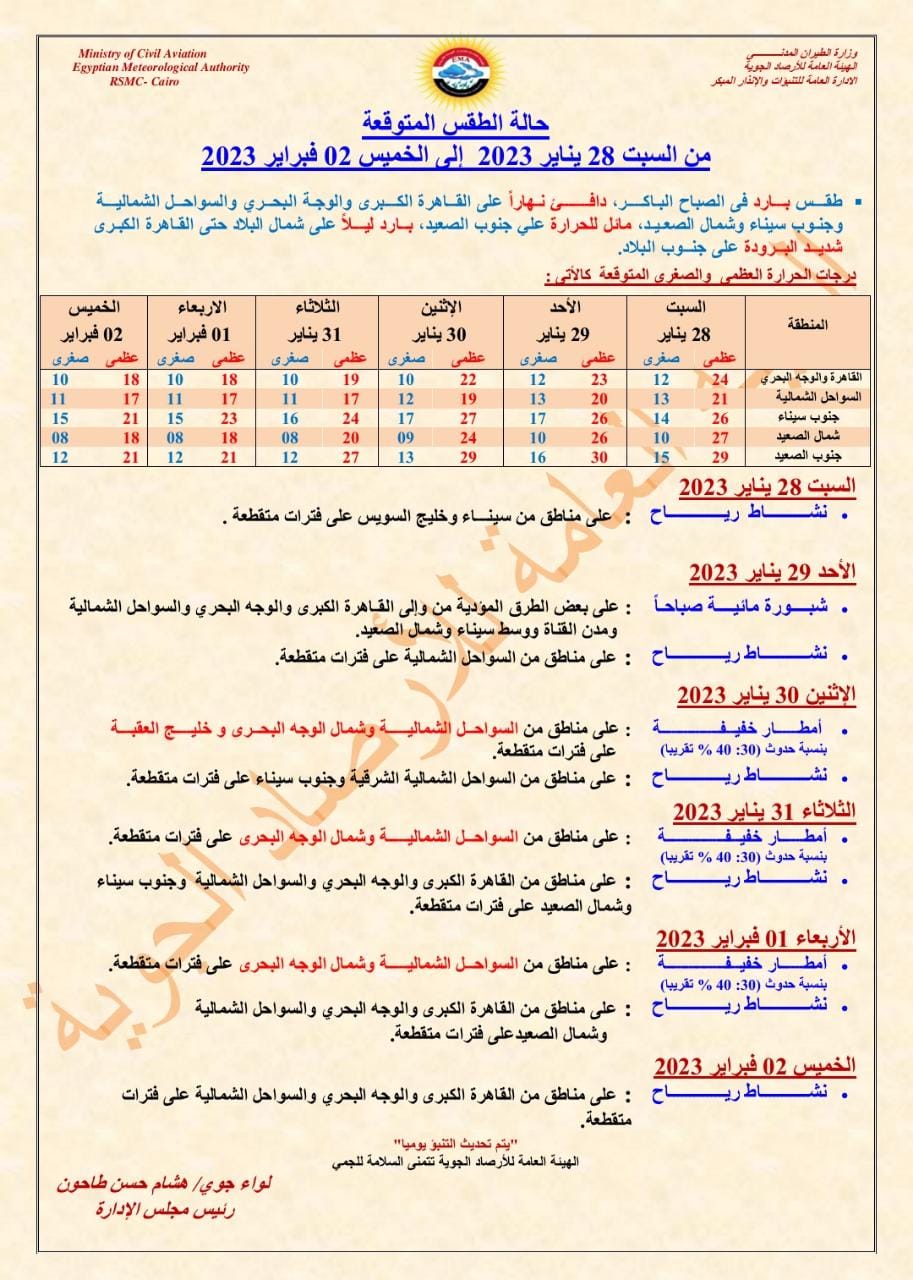 Ministry of Civil Aviation
Egyptian Meteorological Authority
RSMC- Cairo
EMA
وزارة الطيران المدنـــي
الهيئة العامة للأرصاد الجوية
الادارة العامة للتنبؤات والإنذار المبكر
حالة الطقس المتوقعة
من السبت 28 يناير 2023 إلى الخميس 02 فبراير 2023
▪ طقـس بــارد فى الصباح الباكــر، دافـــئ نـهاراً على القـاهرة الكـبرى والوجـة البحـري والسواحـل الشماليـة
وجنوب سيناء وشمال الصعيـد، مائل للحرارة علي جنوب الصعيد، بـارد ليـلاً على شمال البلاد حتى القاهرة الكبرى
شديـد البـرودة على جنـوب البلاد.
درجات الحرارة العظمى والصغرى المتوقعة كالأتي :
المنطقة السبت الأحد الإثنين الثلاثاء الاربعاء الخميس
28 يناير 29 يناير 30 يناير 31 يناير 01 فبراير 02 فبراير
عظمى صغرى عظمى صغرى عظمى صغرى عظمى صغرى عظمى صغرى عظمى صغرى
القاهرة والوجه البحري 24 12 23 12 22 10 19 10 18 10 18 10
السواحل الشمالية 21 13 20 13 19 12 17 11 17 11 17 11
جنوب سيناء 26 14 26 17 27 17 24 16 23 15 21 15
شمال الصعيد 27 10 26 10 24 09 20 08 18 08 18 08
جنوب الصعيد 29 15 30 16 29 13 27 12 21 12 21 12
السبت 28 يناير 2023
• نشـــاط ريـــاح : على مناطق من سينــاء وخليج السويس على فترات متقطعة .
الأحد 29 يناير 2023
• شبـورة مائيـة صباحاً : على بعض الطرق المؤدية من وإلى القـاهرة الكبرى والوجه البحري والسواحل الشمالية
ومدن القناة ووسط سيناء وشمال الصعيد.
• نشـــاط ريـــاح : على مناطق من السواحل الشمالية على فترات متقطعة.
الإثنين 30 يناير 2023
• أمطــار خفيفــة : على مناطق من السواحـل الشماليـــة وشمال الوجه البحـرى و خليــج العقبـة
بنسبة حدوث (30: 40 % تقريبا) على فترات متقطعة.
• نشـــاط ريـــاح : على مناطق من السواحل الشمالية الشرقية وجنوب سيناء على فترات متقطعة.
الثلاثاء 31 يناير 2023
• أمطــار خفيفــة : على مناطق من السواحـل الشماليـــة وشمال الوجه البحرى على فترات متقطعة.
بنسبة حدوث (30: 40 % تقريبا)
• نشـــاط ريـــاح : على مناطق من القاهرة الكبرى والوجه البحري والسواحل الشمالية وجنوب سيناء
وشمال الصعيد على فترات متقطعة.
الأربعاء 01 فبراير 2023
• أمطــار خفيفــة : على مناطق من السواحـل الشماليـــة وشمال الوجه البحرى على فترات متقطعة.
بنسبة حدوث (30: 40 % تقريبا)
• نشـــاط ريـــاح : على مناطق من القاهرة الكبرى والوجه البحري والسواحل الشمالية
وشمال الصعيدعلى فترات متقطعة.
الخميس 02 فبراير 2023
• نشـــاط ريـــاح : على مناطق من القاهرة الكبرى والوجه البحري والسواحل الشمالية على فترات
متقطعة.
"يتم تحديث التنبؤ يوميا"
الهيئة العامة للأرصاد الجوية تتمنى السلامة للجمي
لواء جوي/ هشام حسن طاحون
رئيس مجلس الإدارة
العامة للأرصاد الجوية